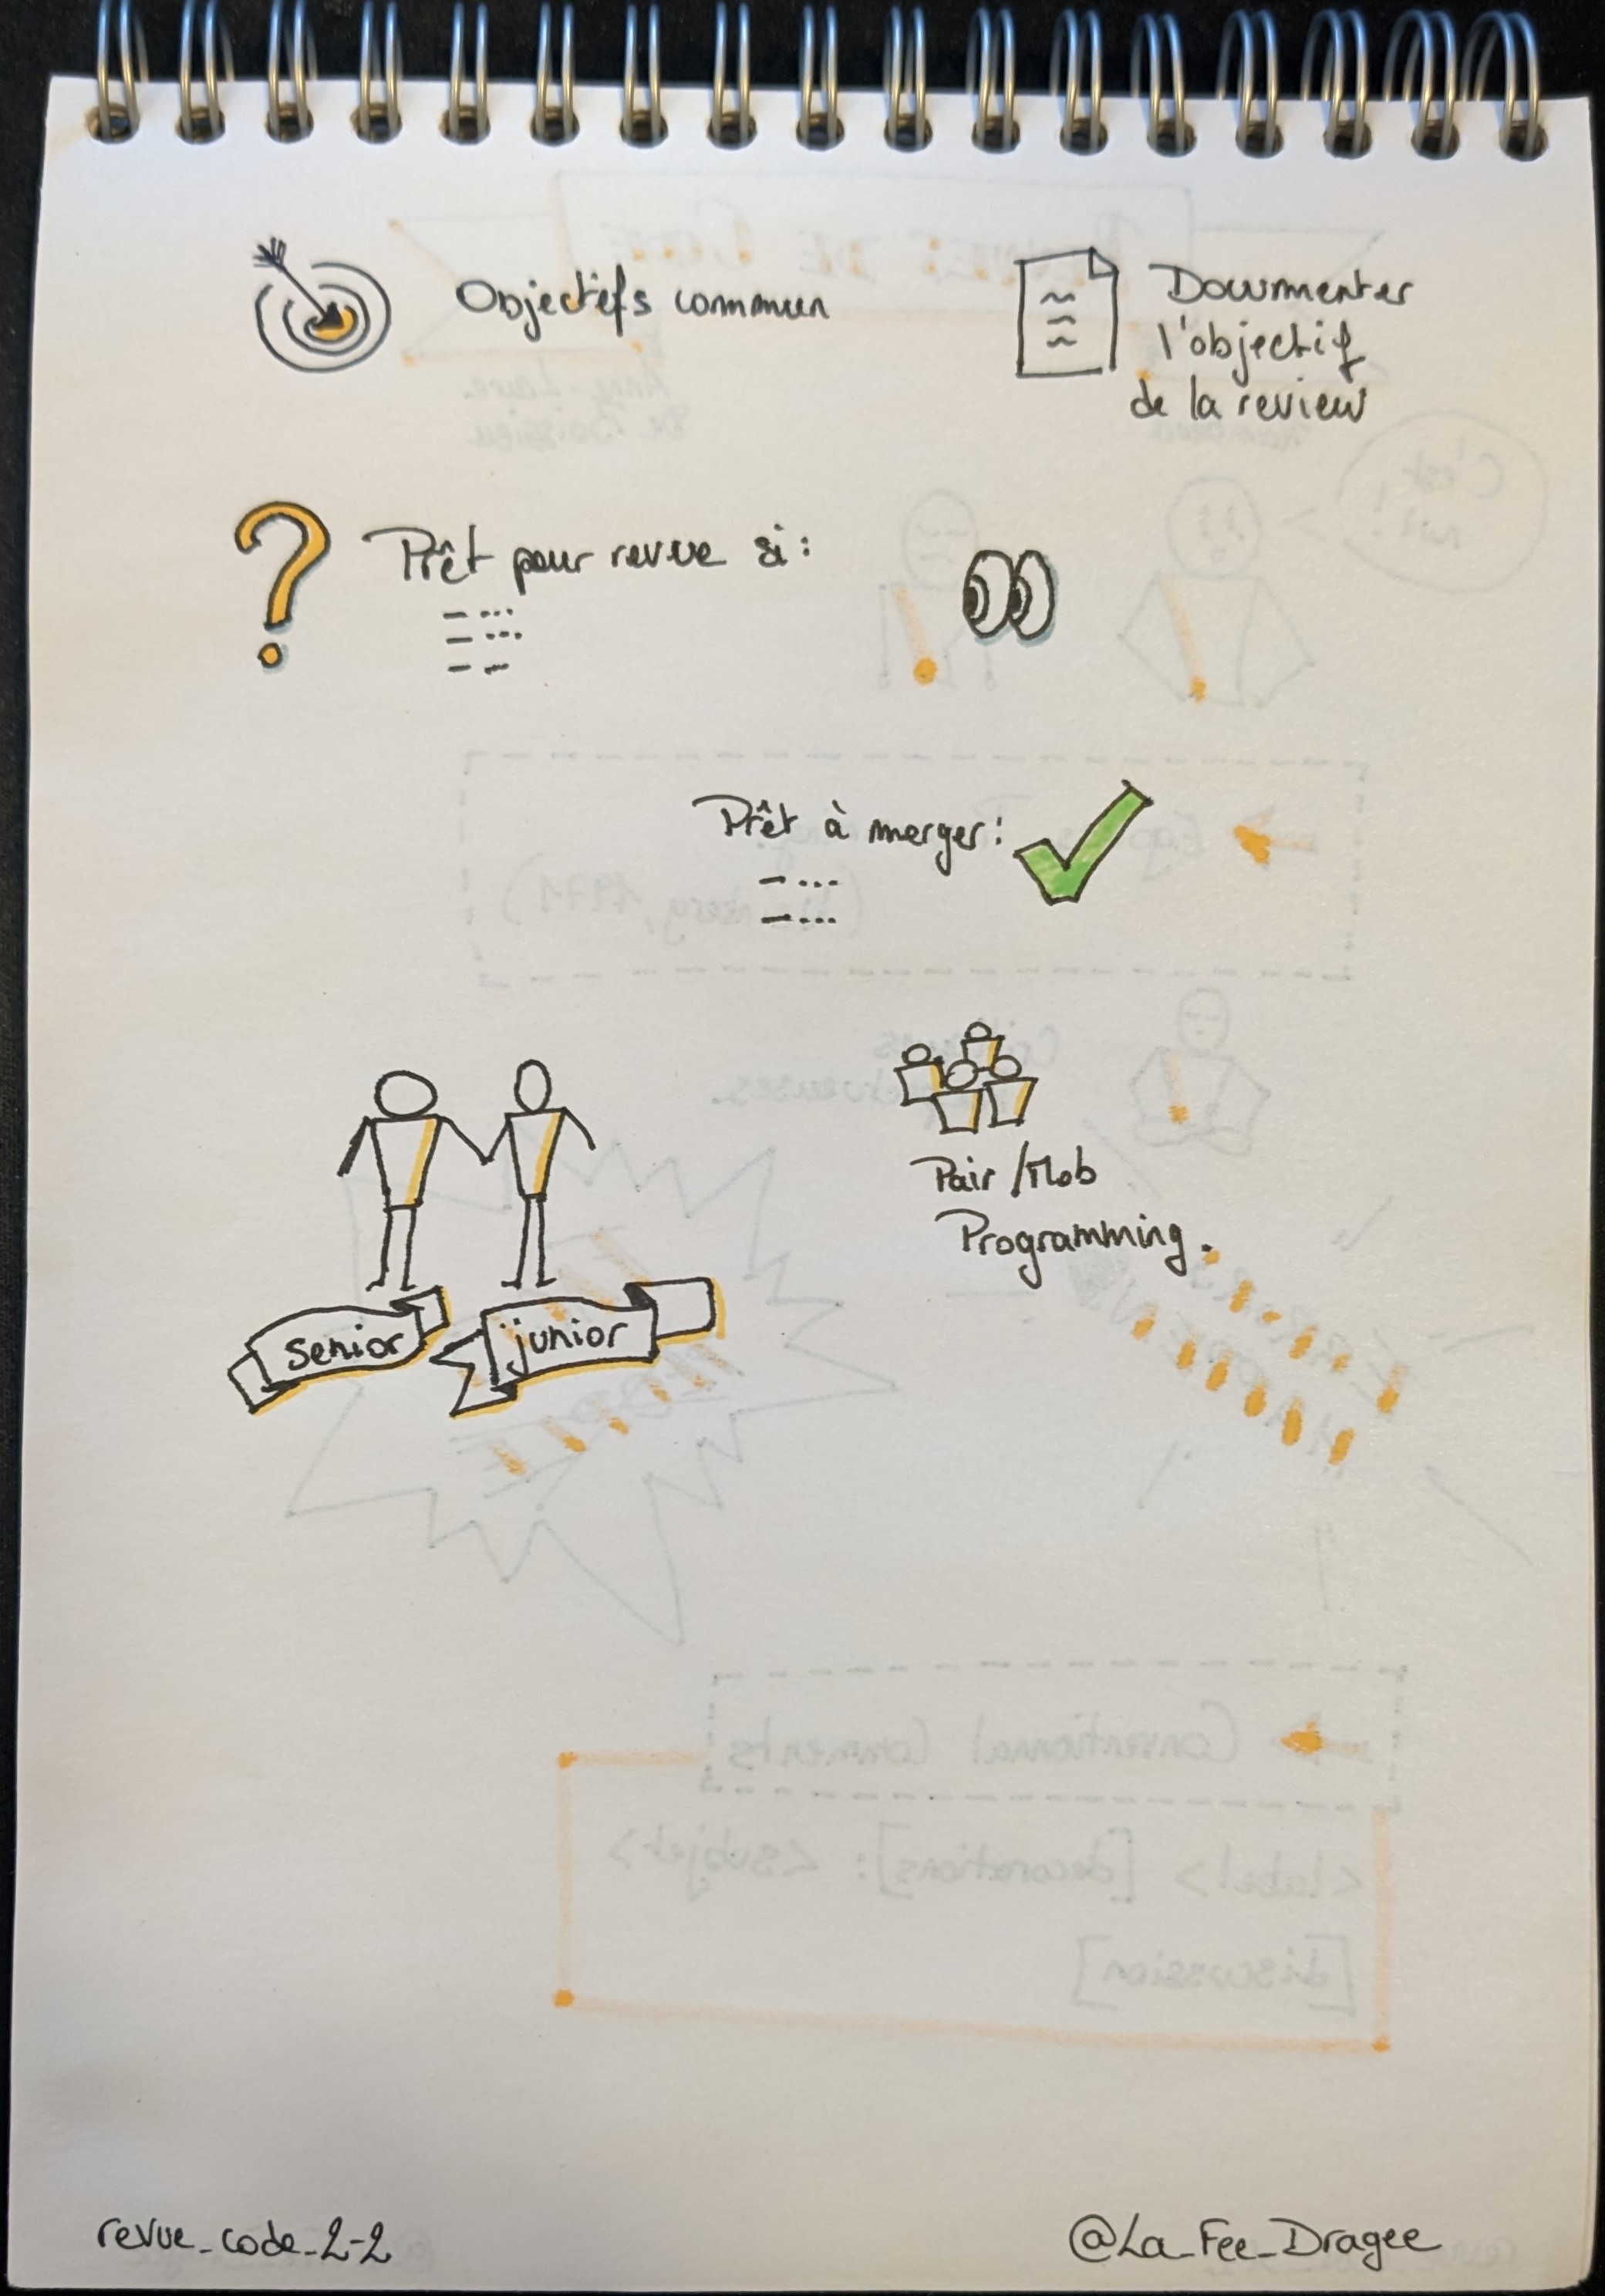 Objectifs commun
Documenter
l'objectif
de la review
Prêt pour revue si :
- ...
- ...
- -
Prêt à merger :
- ...
- ...
Pair / Mob
Programming.
senior
junior
revue_code_2-2
@La_Fee_Dragee